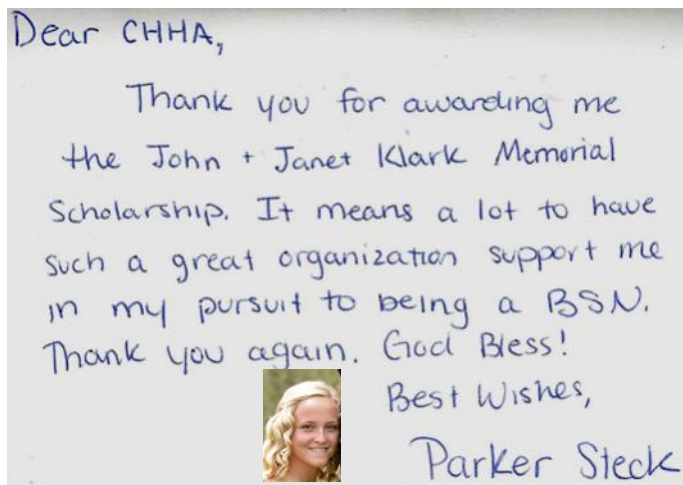 Dear CHHA,
Thank you for awarding me
the John + Janet Klark Memorial
Scholarship. It means a lot to have
such a great organization support me
in my pursuit to being a BSN.
Thank you again. God Bless!
Best Wishes,
Parker Steck